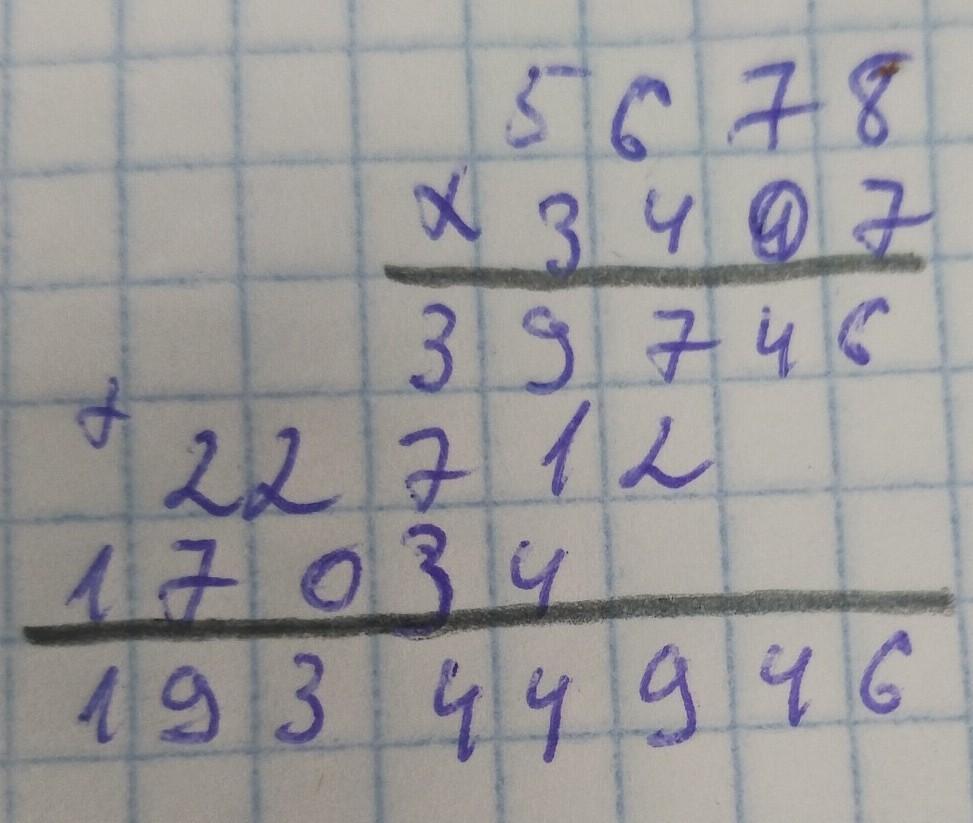 5678
x 3407
39746
+ 22712
17034
19344946